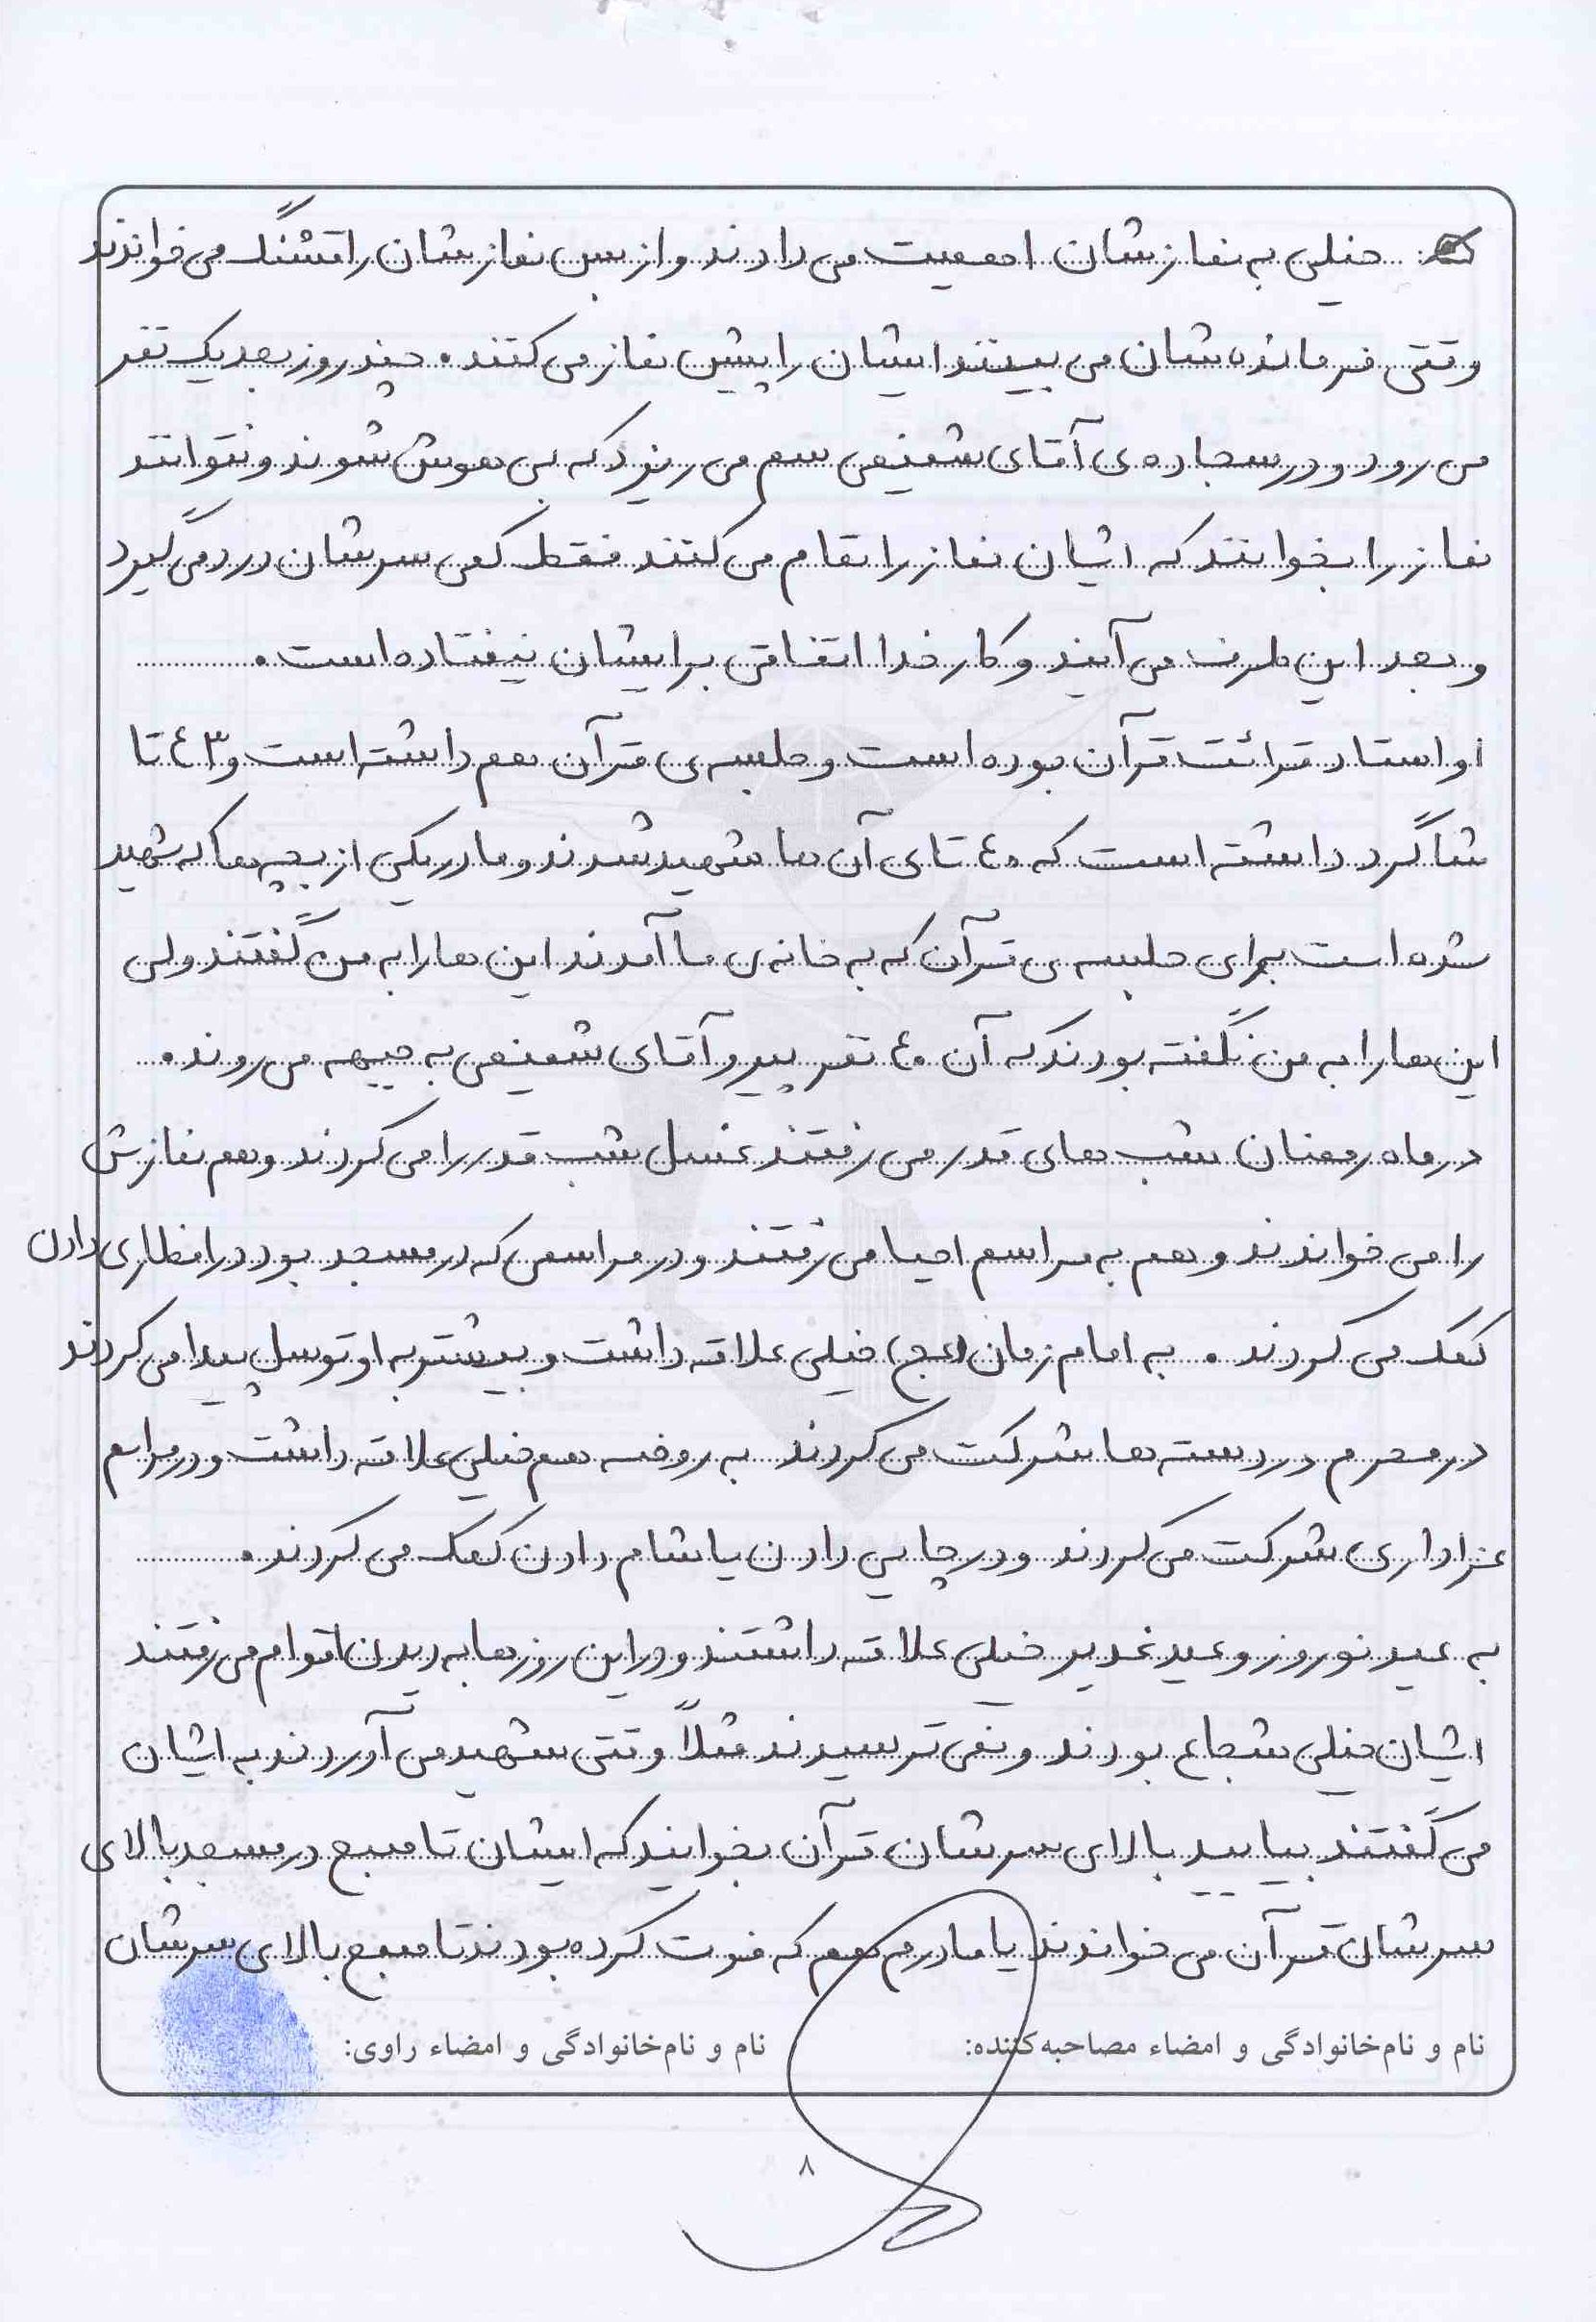 خیلی به نمازشان اهمیت می دادند و از بس نمازشان را قشنگ می خواندند
وقتی فرمانده شان می بینند ایشان را پیش نماز می کنند. چند روز بعد یک نفر
می رود و در سجاده ی آقای شفیعی سم می ریزد که بی هوش شوند و نتوانند
نماز را بخوانند که ایشان نماز را تمام می کنند فقط کمی سرشان درد می گیرد
و بعد این طرف می آیند و کار خدا اتفاقی برایشان نیفتاده است.
او استاد قرائت قرآن بوده است و جلسه ی قرآن هم داشته است و ٤٣ تا
شاگرد داشته است که ٤٠ تای آن ها شهید شدند و مادر یکی از بچه ها که شهید
شده است برای جلسه ی قرآن که به خانه ی ما آمدند این ها را به من گفتند ولی
این ها را به من نگفته بودند که آن ٤٠ نفر پیرو آقای شفیعی به جبهه می روند.
در ماه رمضان شب های قدر می رفتند غسل شب قدر را می کردند و هم نمازش
را می خواندند و هم به مراسم احیا می رفتند و در مراسمی که در مسجد بود در افطاری دادن
کمک می کردند. به امام زمان (عج) خیلی علاقه داشت و بیشتر به او توسل پیدا می کردند
در محرم در دسته ها شرکت می کردند به روضه هم خیلی علاقه داشت و در مراسم
عزاداری شرکت می کردند و در چایی دادن یا شام دادن کمک می کردند.
به عید نوروز و عید غدیر خیلی علاقه داشتند و در این روزها به دیدن اقوام می رفتند
ایشان خیلی شجاع بودند و نمی ترسیدند مثلاً وقتی شهید می آوردند به ایشان
می گفتند بیایید بالای سرشان قرآن بخوانید که ایشان تا صبح در مسجد بالای
سرشان قرآن می خواندند یا مادرم هم که فوت کرده بودند تا صبح بالای سرشان
نام و نام‌خانوادگی و امضاء مصاحبه‌کننده: نام و نام‌خانوادگی و امضاء راوی:
٨